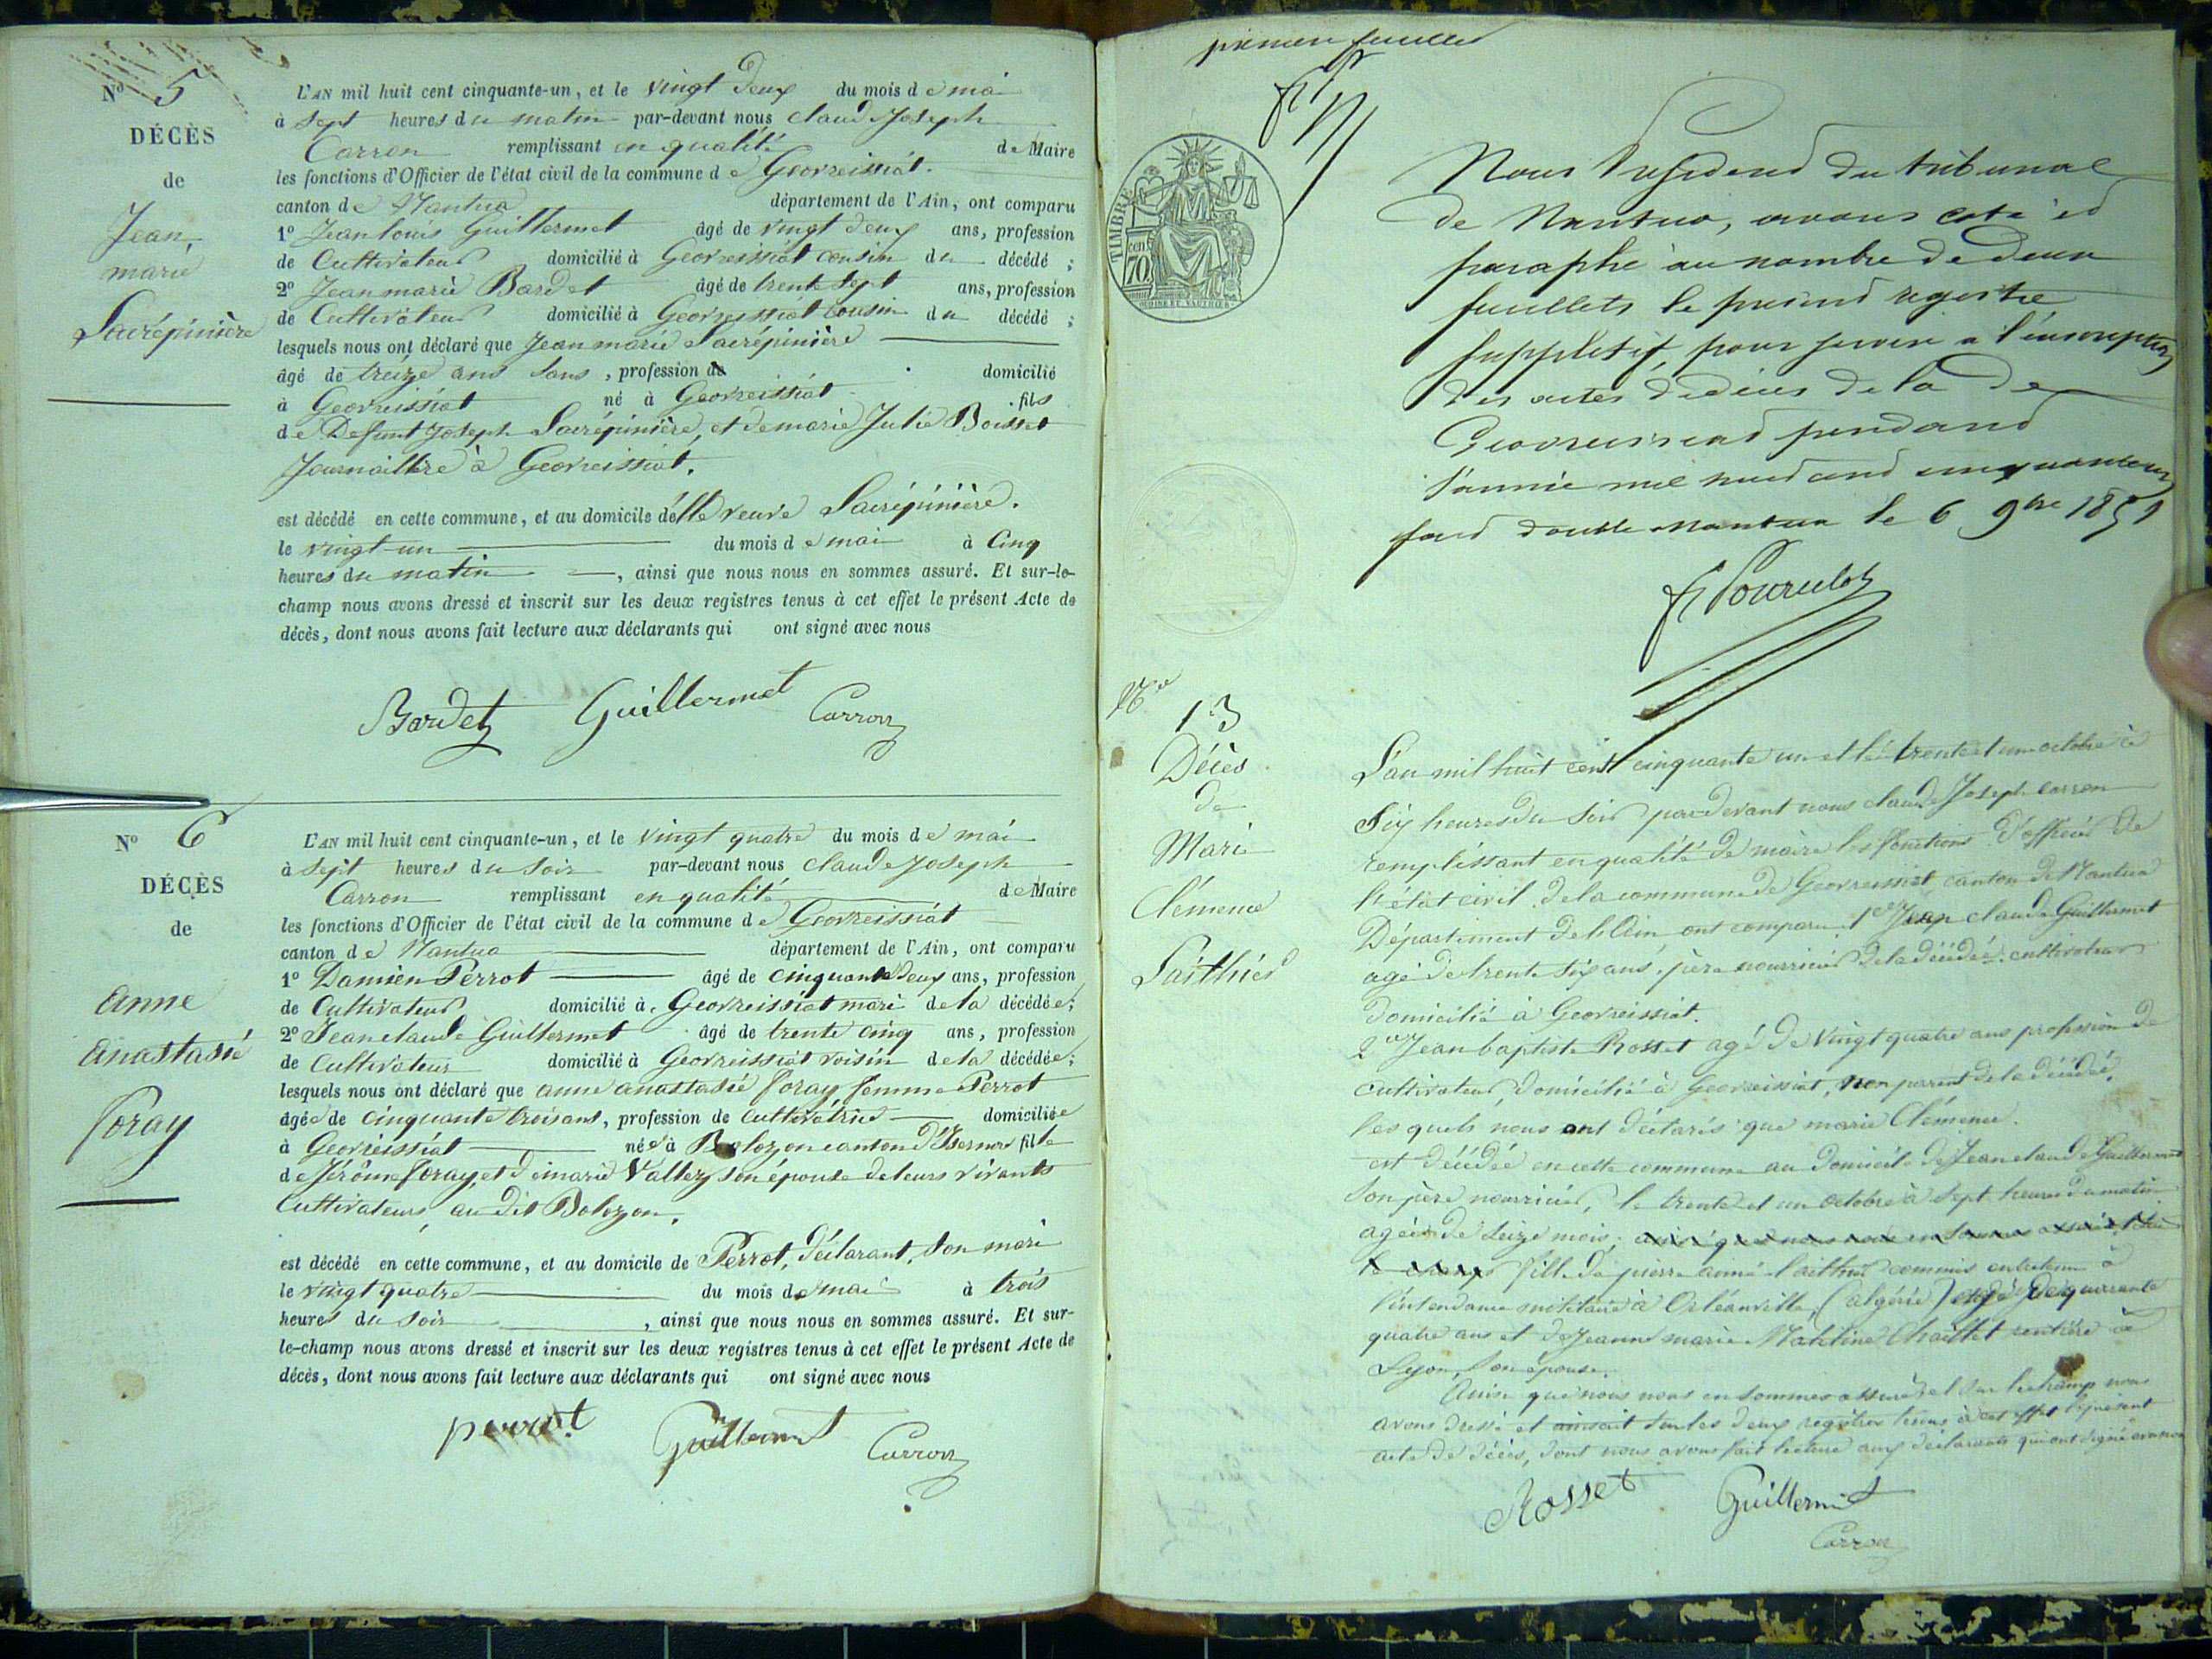 N° 5
DÉCÈS
de
Jean,
marie
Lacrépinière
L'AN mil huit cent cinquante-un, et le vingt deux du mois de mai
à sept heures du matin par-devant nous claude Joseph
Carron remplissant en qualité de Maire
les fonctions d'Officier de l'état civil de la commune de Geovreissiat.
canton de Nantua département de l'Ain, ont comparu
1° Jean louis Guillermet âgé de vingt deux ans, profession
de Cultivateur domicilié à Geovreissiat cousin du décédé ;
2° Jean marie Bardet âgé de trente sept ans, profession
de Cultivateur domicilié à Geovreissiat cousin du décédé ;
lesquels nous ont déclaré que Jean marie Lacrépinière
âgé de treize ans sans , profession de domicilié
à Geovreissiat né à Geovreissiat . fils
de Defunt Joseph Lacrépinière, et de marie Julie Boisset
Journaillère à Geovreissiat.
est décédé en cette commune, et au domicile de lle veuve Lacrépinière.
le vingt-un du mois de mai à Cinq
heures du matin , ainsi que nous nous en sommes assuré. Et sur-le-
champ nous avons dressé et inscrit sur les deux registres tenus à cet effet le présent Acte de
décès, dont nous avons fait lecture aux déclarants qui ont signé avec nous
Bardet Guillermet Carron
N° 6
DÉCÈS
de
Anne
Anastasie
Foray
L'AN mil huit cent cinquante-un, et le vingt quatre du mois de mai
à sept heures du soir par-devant nous claude Joseph
Carron remplissant en qualité de Maire
les fonctions d'Officier de l'état civil de la commune de Geovreissiat
canton de Nantua département de l'Ain, ont comparu
1° Damien Perrot âgé de cinquante deux ans, profession
de Cultivateur domicilié à Geovreissiat mari de la décédée ;
2° Jean claude Guillermet âgé de trente cinq ans, profession
de Cultivateur domicilié à Geovreissiat voisin de la décédée ;
lesquels nous ont déclaré que anne anastasie foray femme Perrot
âgée de cinquante trois ans, profession de Cultivatrice domiciliée
à Geovreissiat née à Bolozon canton d'Izernore fille
de Jérôme foray, et de marie Vallez son épouse de leurs vivants
Cultivateurs au dit Bolozon.
est décédé en cette commune, et au domicile de Perrot, déclarant, son mari
le vingt quatre du mois de mai à trois
heures du soir , ainsi que nous nous en sommes assuré. Et sur-
le-champ nous avons dressé et inscrit sur les deux registres tenus à cet effet le présent Acte de
décès, dont nous avons fait lecture aux déclarants qui ont signé avec nous
perrot Guillermet Carron
premier feuillet
TIMBRE
70 cent
Nous Président du tribunal
de Nantua, avons coté et
paraphé au nombre de deux
feuillets le présent registre
supplétif, pour servir a l'inscription
des actes de décès de la de
Geovreissiat pendant
l'année mil huit cent cinquante un
fait double Nantua le 6 9bre 1851
N°
13
Décès
de
Marie
Clémence
Laithier
L'an mil huit cent cinquante un et le trente et un octobre à
six heures du soir par devant nous claude Joseph carron
remplissant en qualité de maire les fonctions d'officier de
l'état civil de la commune de Geovreissiat canton de Nantua
Département de l'Ain ont comparu 1er Jean claude Guillermet
agé de trente six ans, père nourricier de la décédée cultivateur
domicilié à Geovreissiat.
2e Jean baptiste Rosset agé de vingt quatre ans profession de
cultivateur, domicilié à Geovreissiat, non parent de la décédée,
les quels nous ont déclaré que marie Clémence.
est décédée en cette commune au domicile de Jean claude Guillermet
son père nourricier, le trente et un octobre à sept heures du matin
agée de seize mois, ainsi que nous nous en sommes assuré et sur
le champ fille de pierre aimé Laithier commis entretenu à
l'intendance militaire à Orléanville, (algérie) agé de quarante
quatre ans et de Jeanne marie Chaillet rentière à
Lyon, son épouse.
Ainsi que nous nous en sommes assuré et sur le champ nous
avons dressé et inscrit sur les deux registres tenus à cet effet le présent
acte de décès, dont nous avons fait lecture aux déclarants qui ont signé avec nous
Rosset Guillermet
Carron